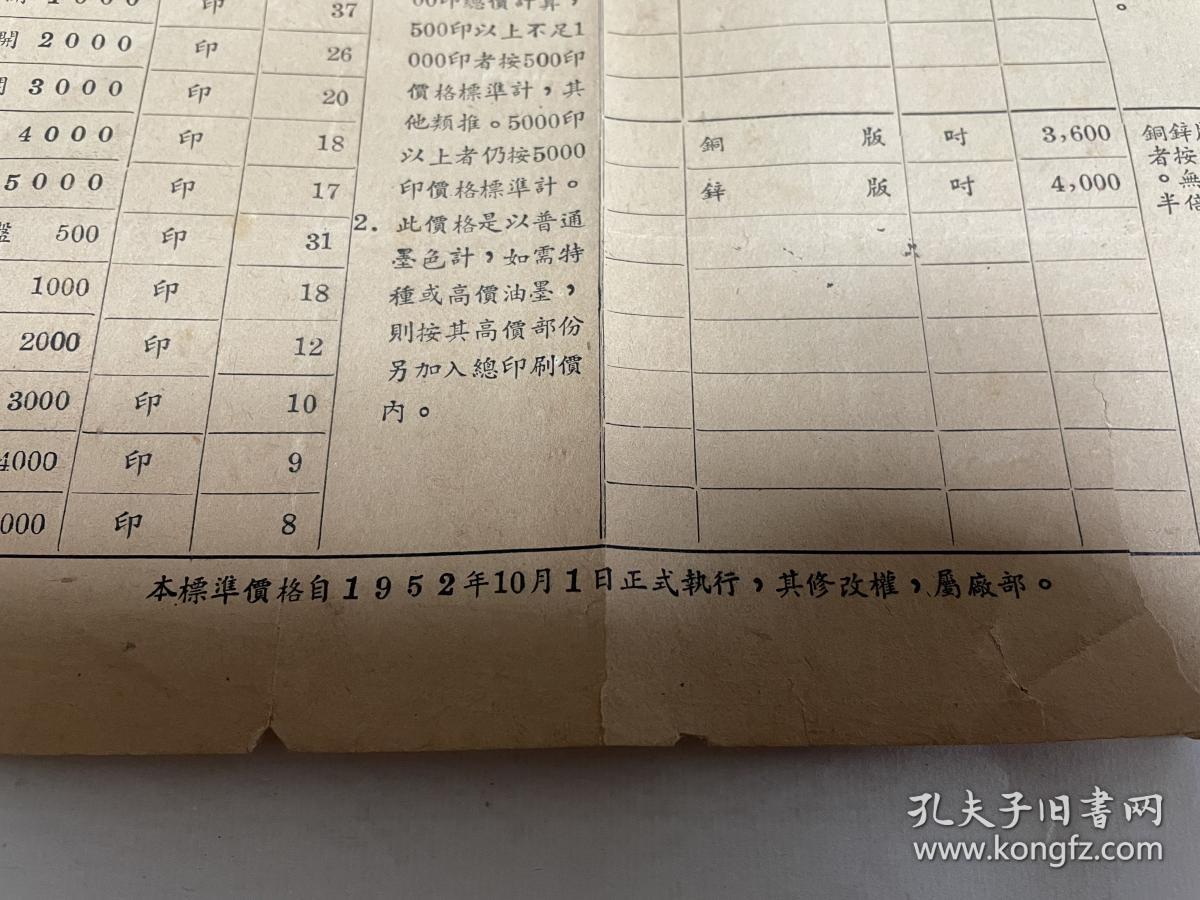 開 1000 印 37
開 2000 印 26
開 3000 印 20
4000 印 18
5000 印 17
500 印 31
1000 印 18
2000 印 12
3000 印 10
4000 印 9
000 印 8
00印總價計算，
500印以上不足1
000印者按500印
價格標準計，其
他類推。5000印
以上者仍按5000
印價格標準計。
2. 此價格是以普通
墨色計，如需特
種或高價油墨，
則按其高價部份
另加入總印刷價
內。
銅版 吋 3,600
鋅版 吋 4,000
。
銅鋅
者按
。無
半倍
本標準價格自1952年10月1日正式執行，其修改權，屬廠部。
孔夫子旧书网
www.kongfz.com